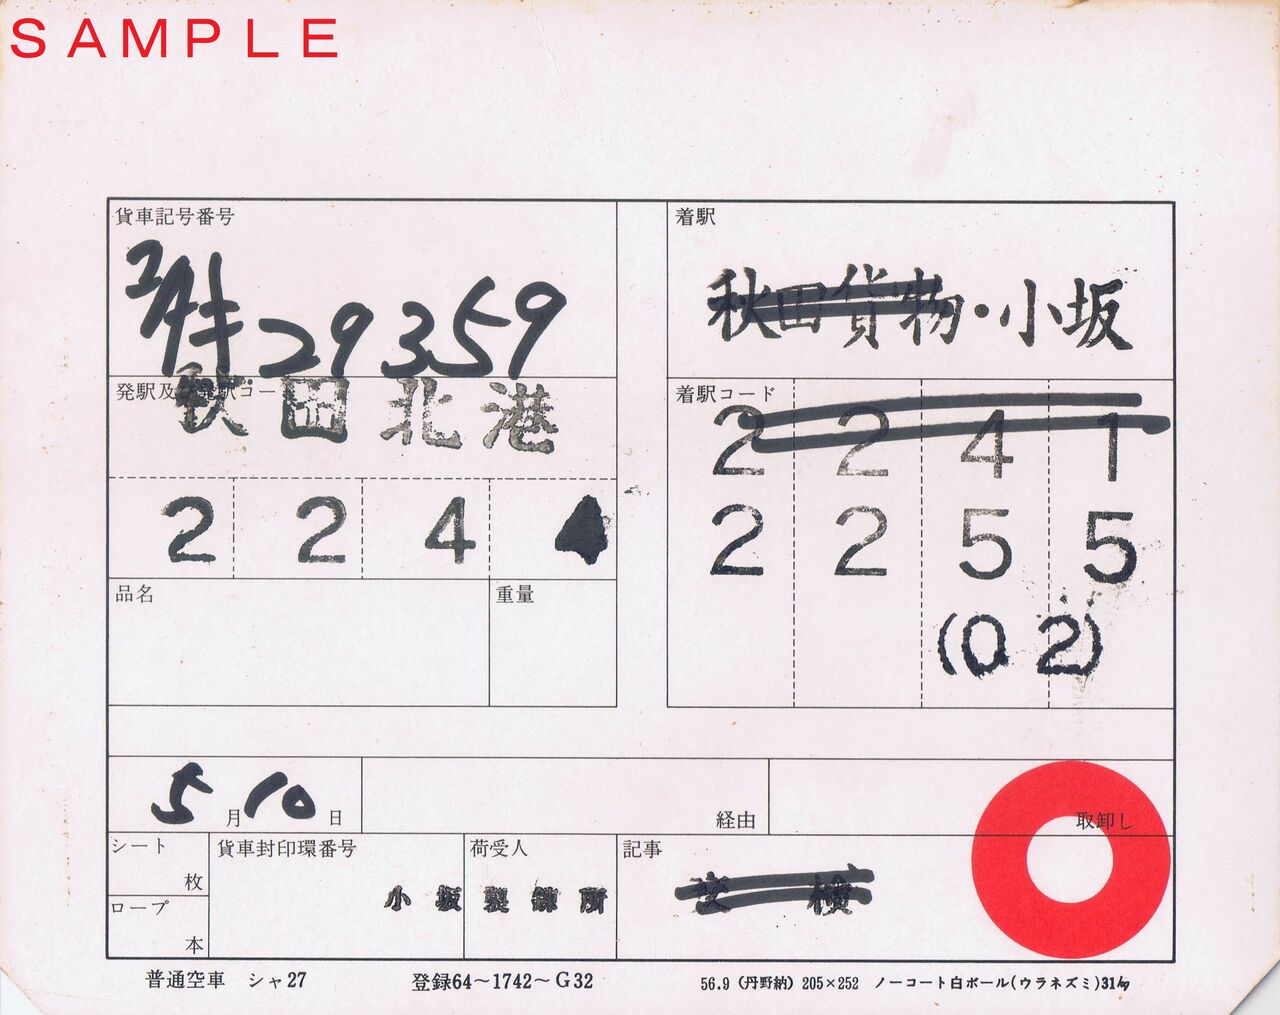 SAMPLE
貨車記号番号
着駅
29359
秋田貨物・小坂
発駅及び発駅コード
秋田北港
着駅コード
2 2 4 1
2 2 4
2 2 5 5
品名
重量
(02)
5月10日
経由
取卸し
シート
枚
貨車封印環番号
荷受人
記事
小坂製錬所
ロープ
本
普通空車 シャ27
登録64~1742~G32
56.9 (丹野納) 205×252 ノーコート白ボール(ウラネズミ)31